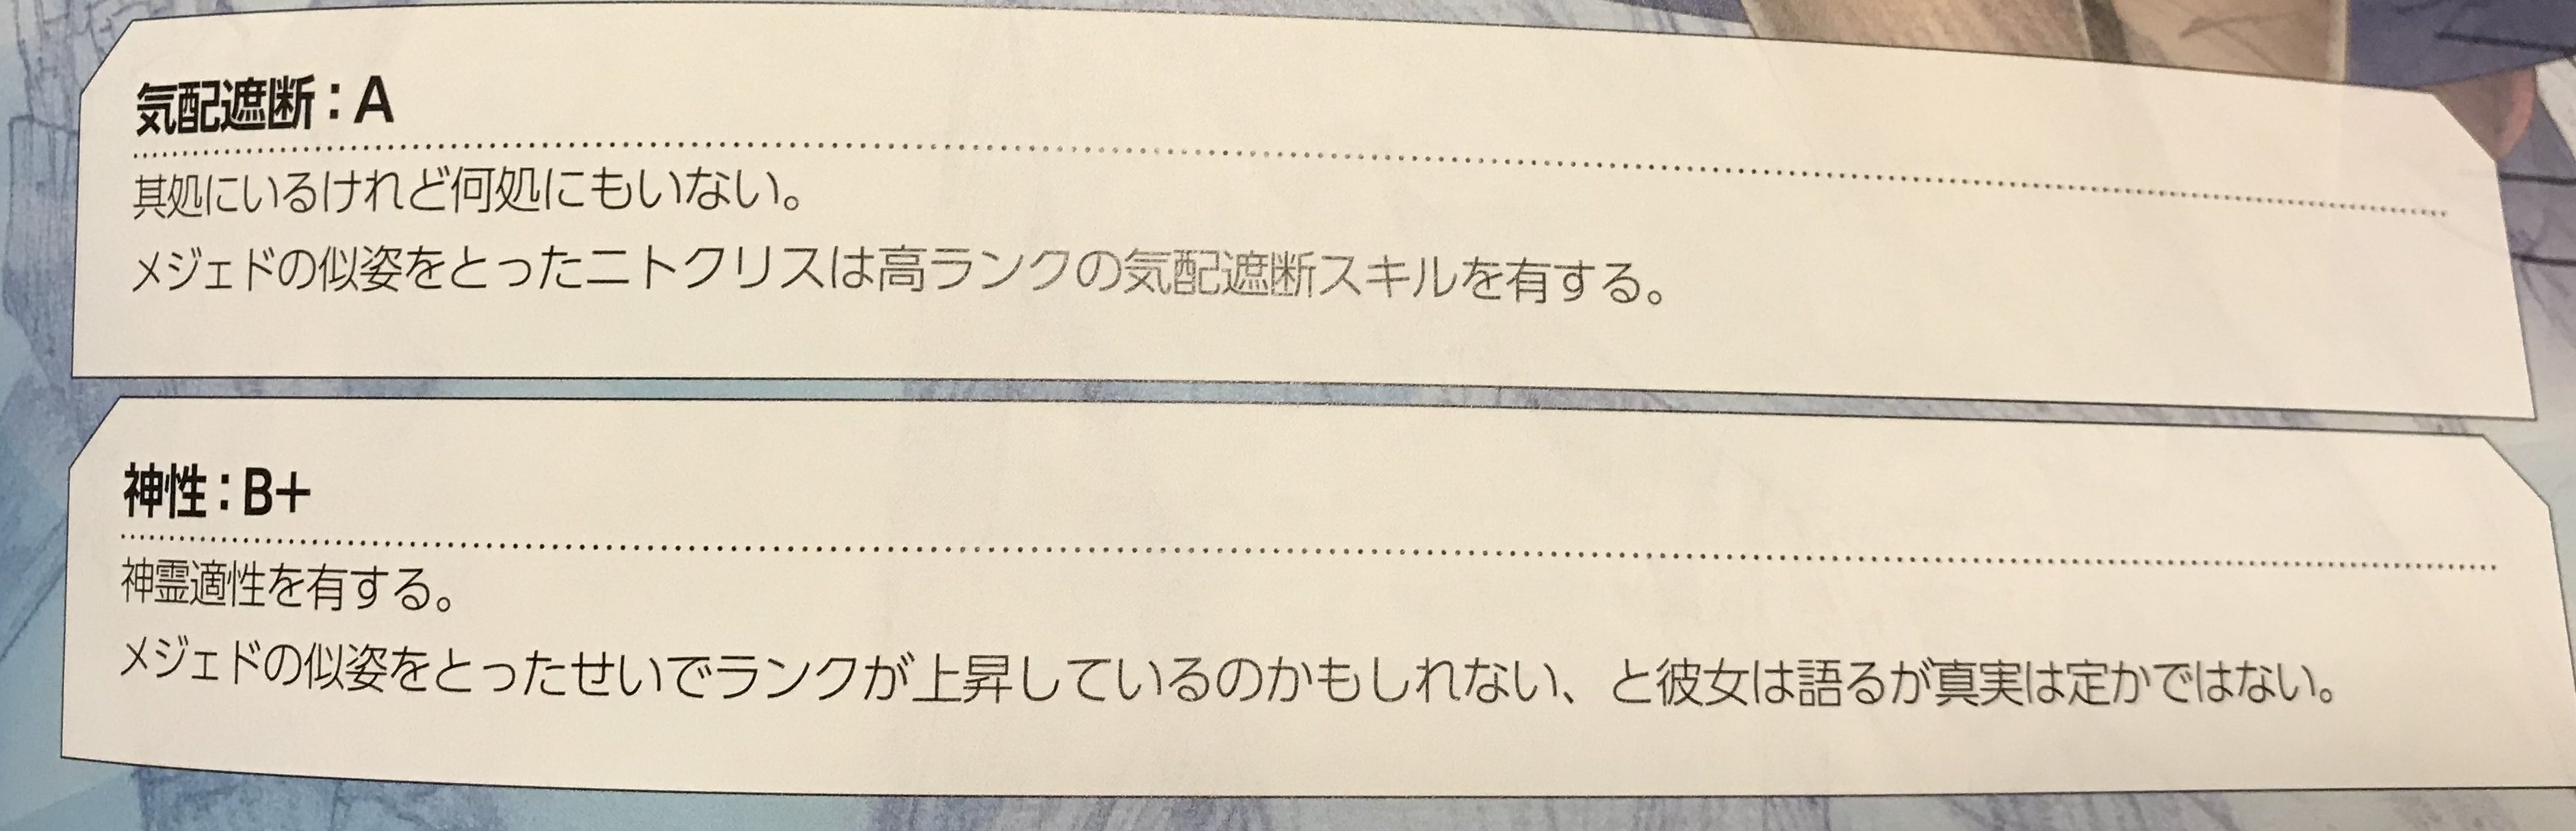 気配遮断：A
其処にいるけれど何処にもいない。
メジェドの似姿をとったニトクリスは高ランクの気配遮断スキルを有する。
神性：B+
神霊適性を有する。
メジェドの似姿をとったせいでランクが上昇しているのかもしれない、と彼女は語るが真実は定かではない。